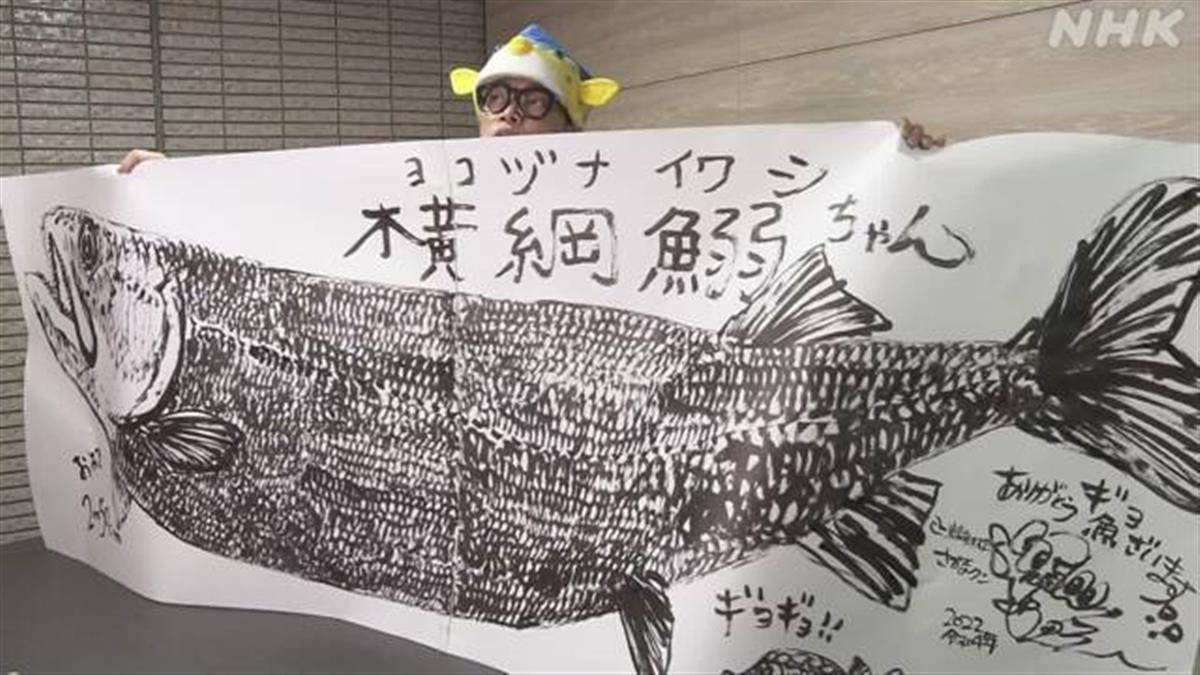 NHK
ヨコヅナ イワシ
横綱鰯ちゃん
ありがとうギョ
魚ざいます
さかなクン
2022
令和4年
ギョギョ!!